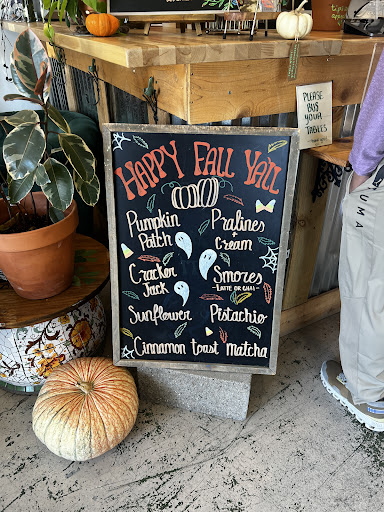 PLEASE
BUS
YOUR
TABLES
HAPPY FALL YA'LL
Pumpkin
Patch
Pralines
+
Cream
Cracker
Jack
Smores
-LATTE OR CHAI-
Sunflower
Pistachio
Cinnamon toast Matcha
PUMA